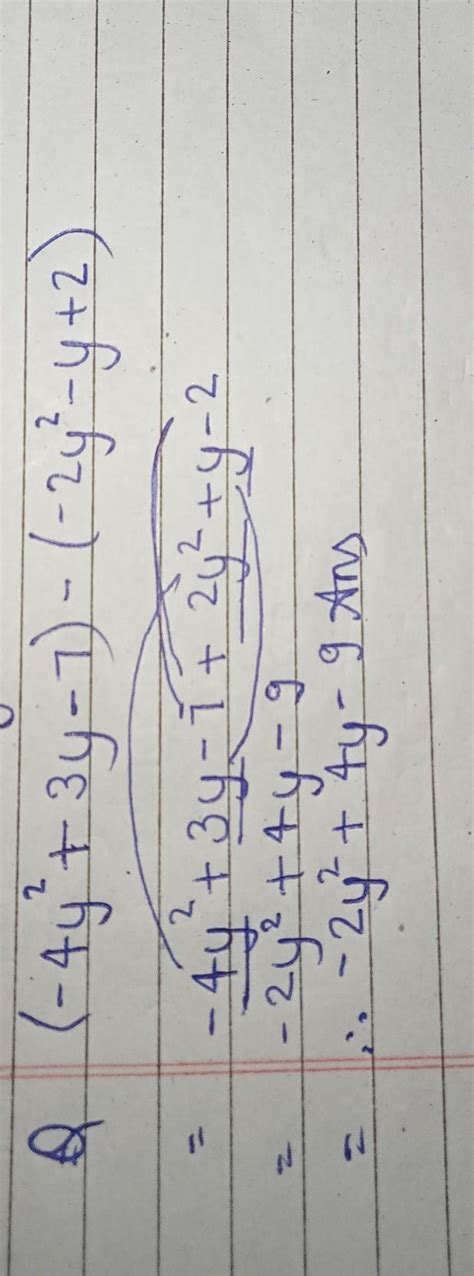 Q (-4y² + 3y - 7) - (-2y² - y + 2)
= -4y² + 3y - 7 + 2y² + y - 2
= -2y² + 4y - 9
= ∴ -2y² + 4y - 9 Ans